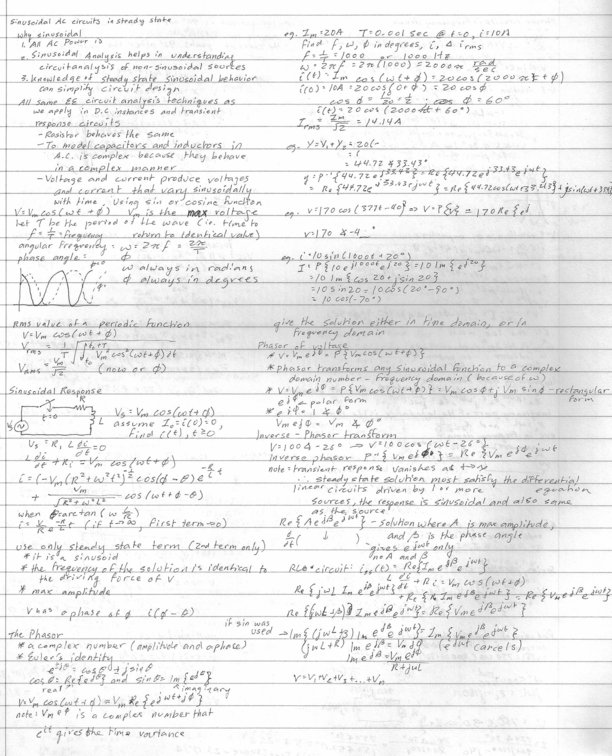 Sinusoidal AC circuits in steady state
Why sinusoidal
1. All AC Power is
2. Sinusoidal Analysis helps in understanding
circuit analysis of non-sinusoidal sources
3. knowledge of steady state sinusoidal behavior
can simplify circuit design
All same EE circuit analysis techniques as
we apply in D.C. instances and transient
response circuits
- Resistor behaves the same
- To model capacitors and inductors in
A.C. is complex because they behave
in a complex manner
- Voltage and current produce voltages
and current that vary sinusoidally
with time. Using sin or cosine function
V=Vm cos(ωt + ϕ) Vm is the max voltage
Let T be the period of the wave (i.e. time to
f = 1/T = frequency return to identical value)
angular frequency: ω = 2πf = 2π/T
phase angle: ϕ
ω always in radians
ϕ always in degrees
rms value of a periodic function
V=Vm cos(ωt + ϕ)
Vrms = Vm/√2 (no ω or ϕ)
Sinusoidal Response
t=0 R L Vs
Vs = Vm cos(ωt+ϕ)
assume I0=i(0)=0,
find i(t), t≥0
L di/dt + Ri = Vm cos(ωt + ϕ)
+ Vm/√(R²+ω²L²) cos(ωt+ϕ-θ)
(if t→∞, first term→0)
use only steady state term (2nd term only)
* it is a sinusoid
* the frequency of the solution is identical to
the driving force of V
* max amplitude
V has a phase of ϕ i(ϕ-θ)
The Phasor
* a complex number (amplitude and phase)
* Euler's identity
e^jθ = cosθ + j sinθ
cosθ = Re{e^jθ} and sinθ = Im{e^jθ}
real imaginary
note: Vm e^jϕ is a complex number that
e^jt gives the time variance
eg. Im=20A T=0.001 sec @ t=0, i=10A
Find f, ω, ϕ in degrees, i, & irms
f = 1/T = 1000 or 1000 Hz
ω = 2πf = 2π(1000) = 2000π rad/sec
i(t) = Im cos(ωt+ϕ) = 20cos(2000πt+ϕ)
i(0) = 10A = 20cos(0+ϕ) = 20cosϕ
cosϕ = 10/20 = 1/2 ∴ cos ϕ = 60°
i(t) = 20 cos(2000πt+60°)
Irms = Im/√2 = 14.14A
eg. Y=Y1+Y2 = 20(-
= (
= 44.72 ∡33.43°
eg. V=170 cos(377t-40°)
V=170 ∡-4
eg. i=10sin(1000t+20°)
I = P{10e^j1000t e^j20} = 10 Im{e^j20}
= 10 Im{cos 20 + j sin 20}
= 10 sin20 = 10cos(20°-90°)
= 10 cos(-70°)
give the solution either in time domain, or in
frequency domain
Phasor of voltage
* V=Vm e^jϕ = P{Vm cos(ωt+ϕ)}
* phasor transforms any sinusoidal function to a complex
domain number - frequency domain (because of ω)
* V=Vm e^jϕ = P{Vm cos(ωt+ϕ)} = Vm cosϕ + j Vm sinϕ - rectangular
form
e^jϕ = polar form
* e^jϕ = 1 ∡ ϕ°
Vm e^jϕ = Vm ∡ ϕ°
Inverse-Phasor transform
V=100∡-26° ⇒ V=100cos(ωt-26°)
Inverse phasor P⁻¹{Vm e^jϕ} = Re{Vm e^jϕ e^jωt}
note: transient response vanishes as t→∞
∴ steady state solution must satisfy the differential
equation
linear circuits driven by 1 or more
sources, the response is sinusoidal and also same
as the source
Re{A e^jβ e^jωt} - solution where A is max amplitude,
and β is the phase angle
gives e^jωt only
no A and β
L di/dt + Ri = Vm cos(ωt+ϕ)
if sin was
used → Im{(jωL+R) Im e^jβ e^jωt} = Im{Vm e^jϕ e^jωt}
(jωL+R) Im e^jβ = Vm e^jϕ (e^jωt cancels)
Im e^jβ = Vm e^jϕ / R+jωL
V=V1+V2+V3+...+Vn